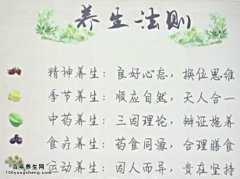 养生法则
精神养生：良好心态，换位思维
季节养生：顺应自然，天人合一
中药养生：三因理论，辩证施养
食疗养生：药食同源，合理膳食
运动养生：因人而异，贵在坚持